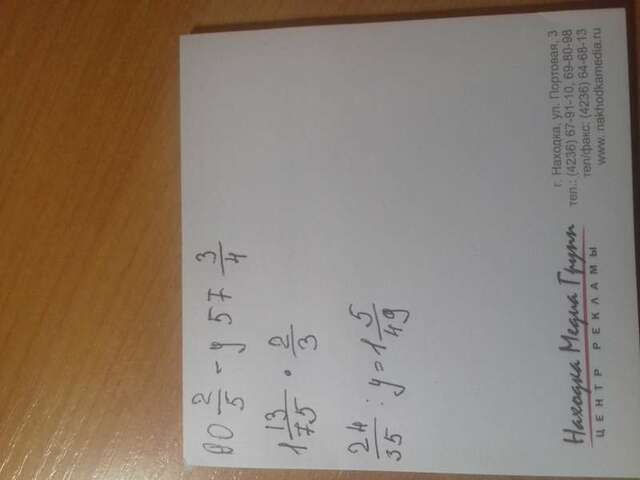 80 2/5 - y 57 3/4
1 13/75 · 2/3
24/35 : y = 1 5/49
Находка Медиа Групп
ЦЕНТР РЕКЛАМЫ
г. Находка, ул. Портовая, 3
тел.: (4236) 67-91-10, 69-80-98
тел/факс: (4236) 64-68-13
www. nakhodkamedia.ru